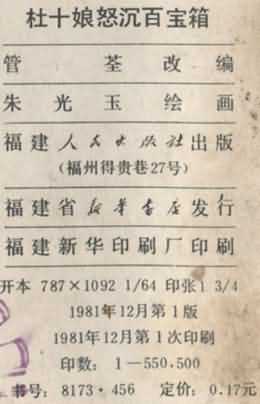 杜十娘怒沉百宝箱
管荃改编
朱光玉绘画
福建人民出版社出版
(福州得贵巷27号)
福建省新华书店发行
福建新华印刷厂印刷
开本 787×1092 1/64 印张1 3/4
1981年12月第1版
1981年12月第1次印刷
印数: 1—550,500
书号: 8173·456 定价: 0.17元